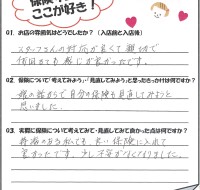 保険
ここが好き！
Q1. お店の雰囲気はどうでしたか？（入店前と入店後）
スタッフさんの対応が良くて親切で
何回きても感じが良かったです。
Q2. 保険について「考えてみよう」・「見直してみよう」と思ったきっかけは何ですか？
親の話がって自分の保険も見直してみようと
思いました。
Q3. 実際に保険について考えてみて・見直してみて良かった点は何ですか？
持病のある私でも良い保険に入れて
良かったです。少し不安がなくなりました。